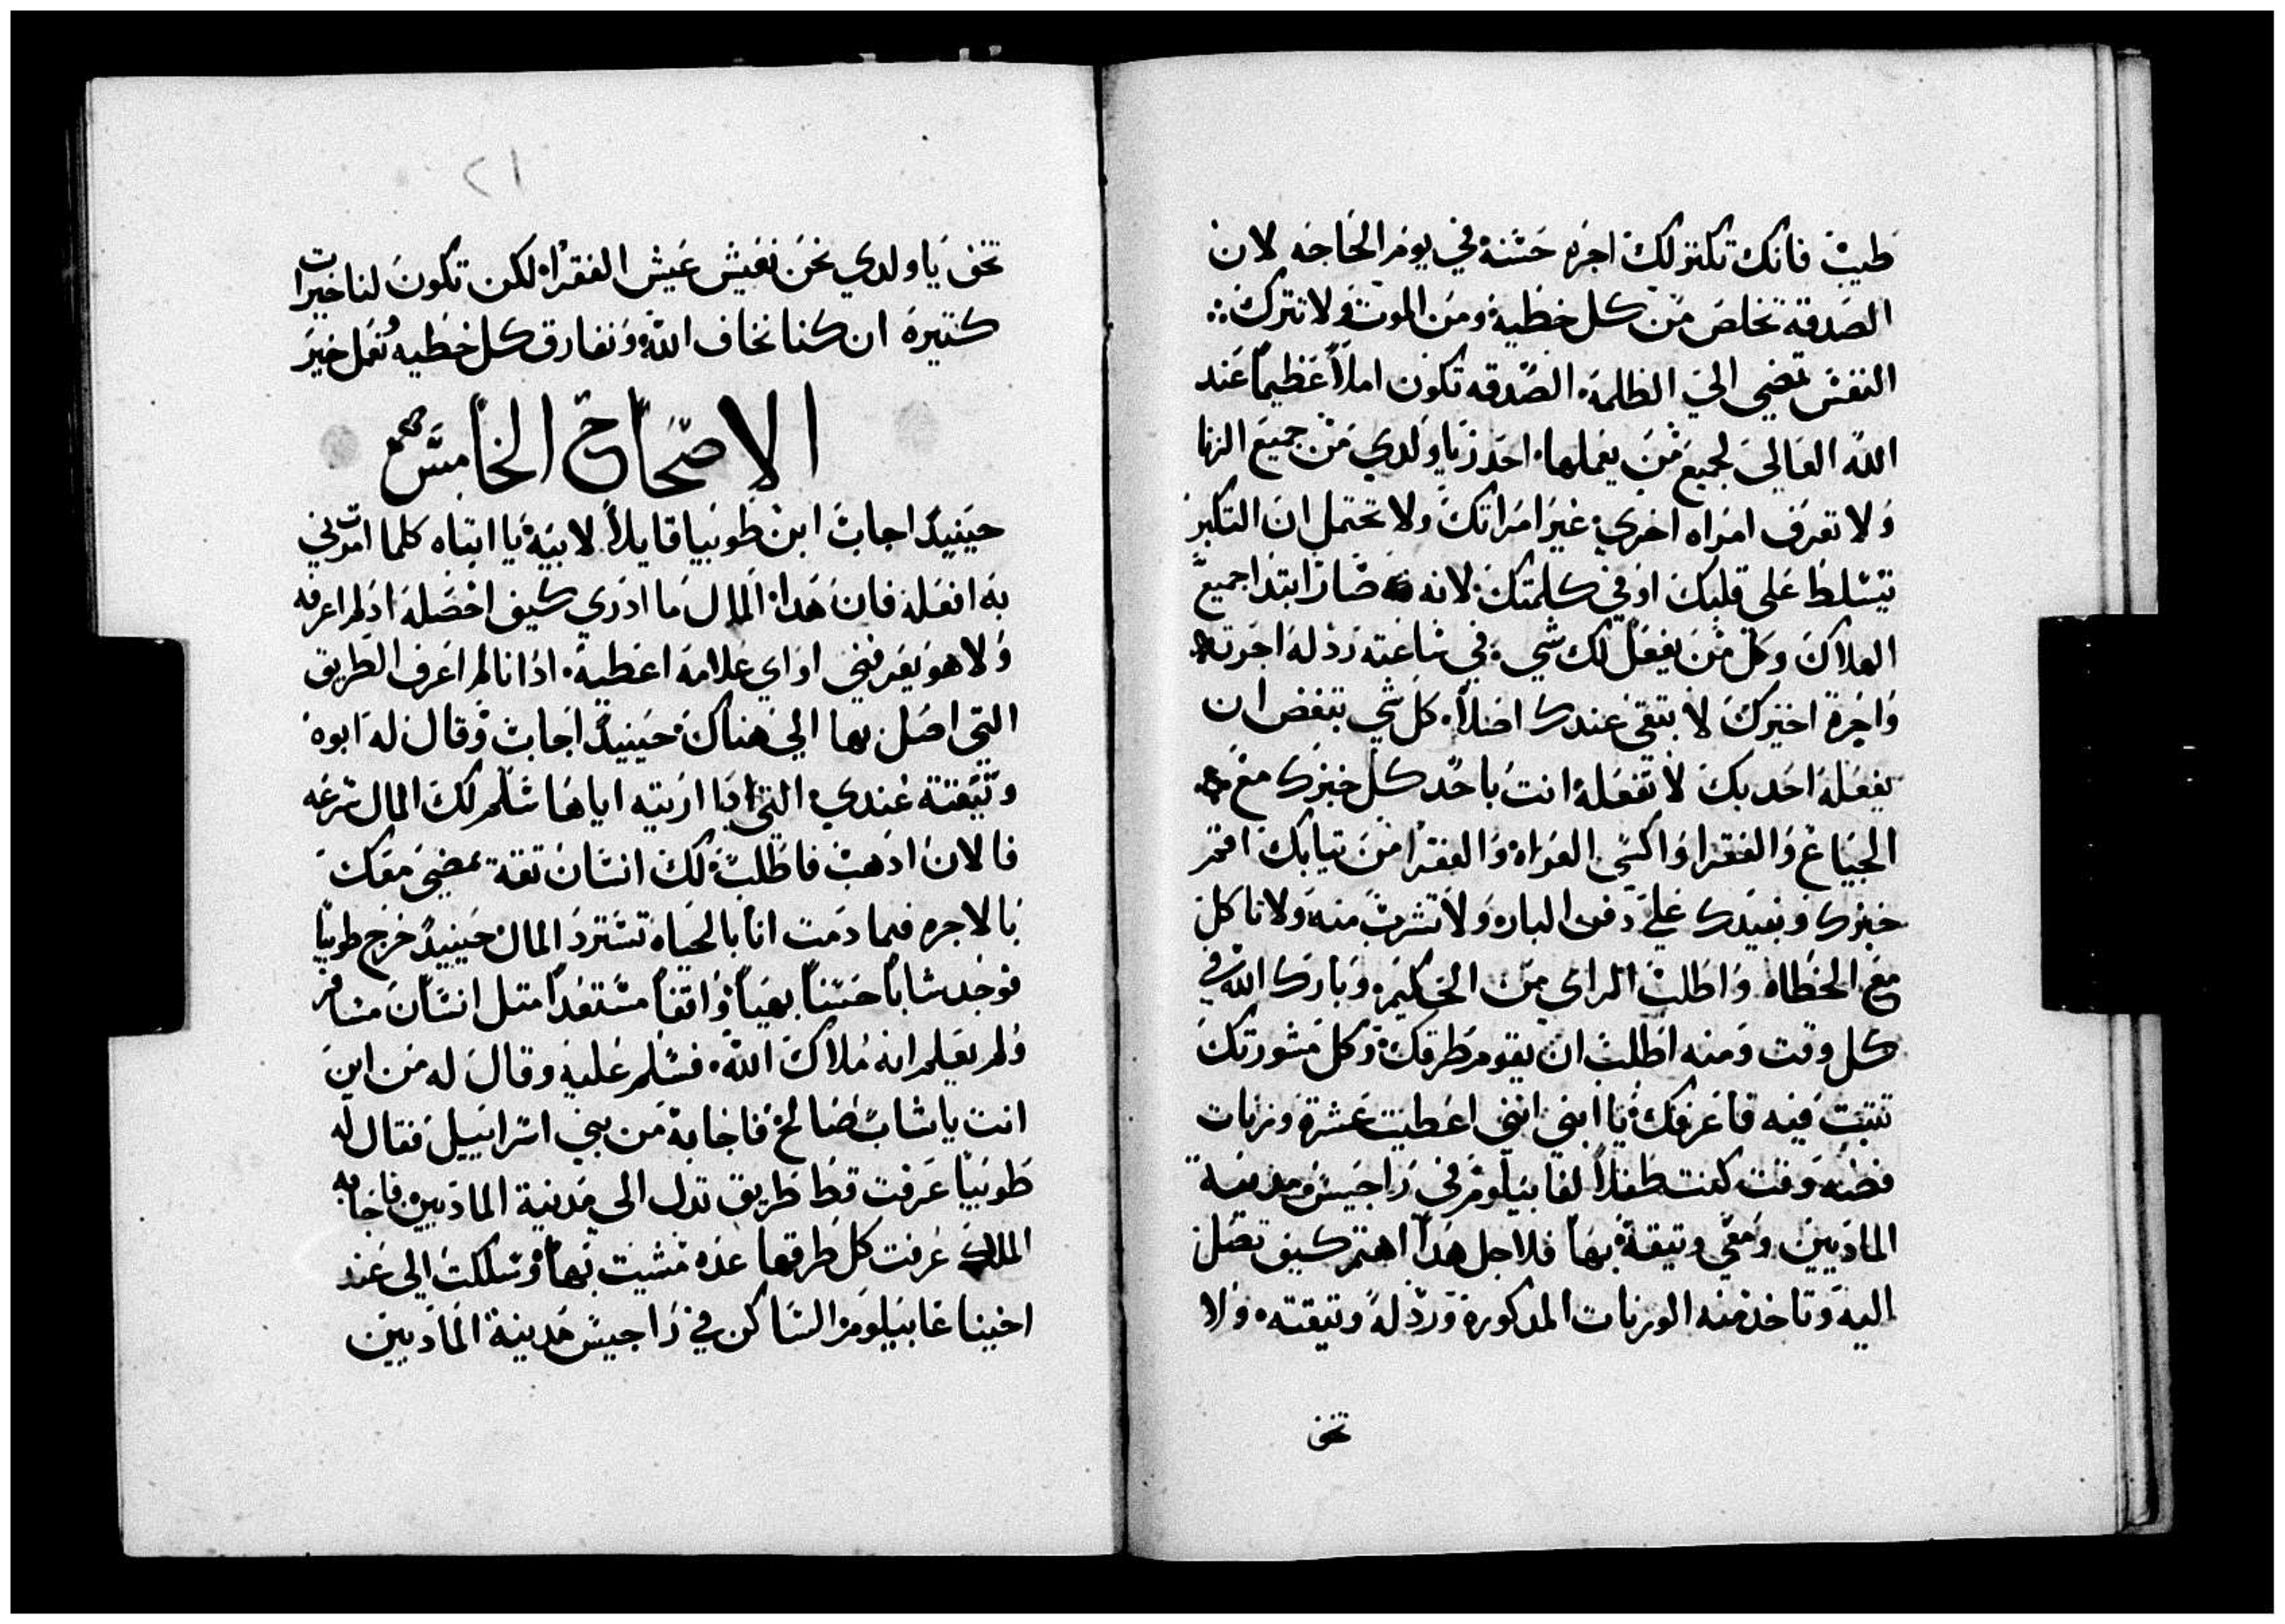 طيبه فانك تكنز لك اجره حسنه في يوم الحاجه لان
الصدقه تخلص من كل خطيه ومن الموت ولا تترك
النفس تمضي الي الظلمه الصدقه تكون املاً عظيماً عند
الله العالي لجميع من يعملها احذر يا ولدي من جميع الزنا
ولا تعرف امراه اخري غير امراتك ولا تحتمل ان التكبر
يتسلط على قلبك او في كلمتك لانه صار ابتدا جميع
الهلاك وكل من يفعل لك شي في ساعته رد له اجرته
واجرة اخيرك لا تبقى عندك اصلاً كل شي تبغض ان
يفعله احد بك لا تفعله انت باحد كل خبزك مع
الجياع والفقرا واكسي العراه والفقرا من تيابك اقتم
خبزك ونبيدك علي دفن الباره ولا تشرب منه ولا تاكل
مع الخطاه واطلب الراي من الحكيم وبارك الله في
كل وقت ومنه اطلب ان يقوم طرقك وكل مشورتك
تتبت فيه فاعرفك يا ابني انني اعطيت عشرة وزنات
فضه وقت كنت طفلاً لغابيلوم في راجيس مدينة
الماديين ومعي وتيقة بها فلاجل هدا اهتم كيف تصل
اليه وتاخد منه الوزنات المدكورة ورد له وتيقته ولا
تخف
٢١
تخف يا ولدي نحن نعيش عيش الفقرا لكن تكون لنا خيرات
كتيرة ان كنا نخاف الله ونفارق كل خطيه نعمل خير
الاصحاح الخامس
حينيد اجاب ابن طوبيا قايلاً لابيه يا ابتاه كلما امرتني
به افعله فان هدا المال ما ادري كيف احصله اد لم اعرفه
ولا هو يعرفني او اي علامه اعطيه اد انا لم اعرف الطريق
التي اصل بها الي هناك حينيد اجاب وقال له ابوه
وتيقته عندي التي ادا اريته اياها سلم لك المال سرعه
فالان ادهب فاطلب لك انسان تقة يمضي معك
بالاجره فيما دمت انا بالحياه تسترد المال حينيد خرج طوبيا
فوجد شاباً حسناً بهياً واقفاً مستعداً متل انسان مسافر
ولم يعلم انه ملاك الله فسلم عليه وقال له من اين
انت يا شاب صالح فاجابه من بني اسراييل فقال له
طوبيا عرفت قط طريق تدل الى مدينة الماديين فاجابه
الملاك عرفت كل طرقها عده مشيت بها وسلكت الى عند
اخينا غابيلوم الساكن في راجيس مدينة الماديين